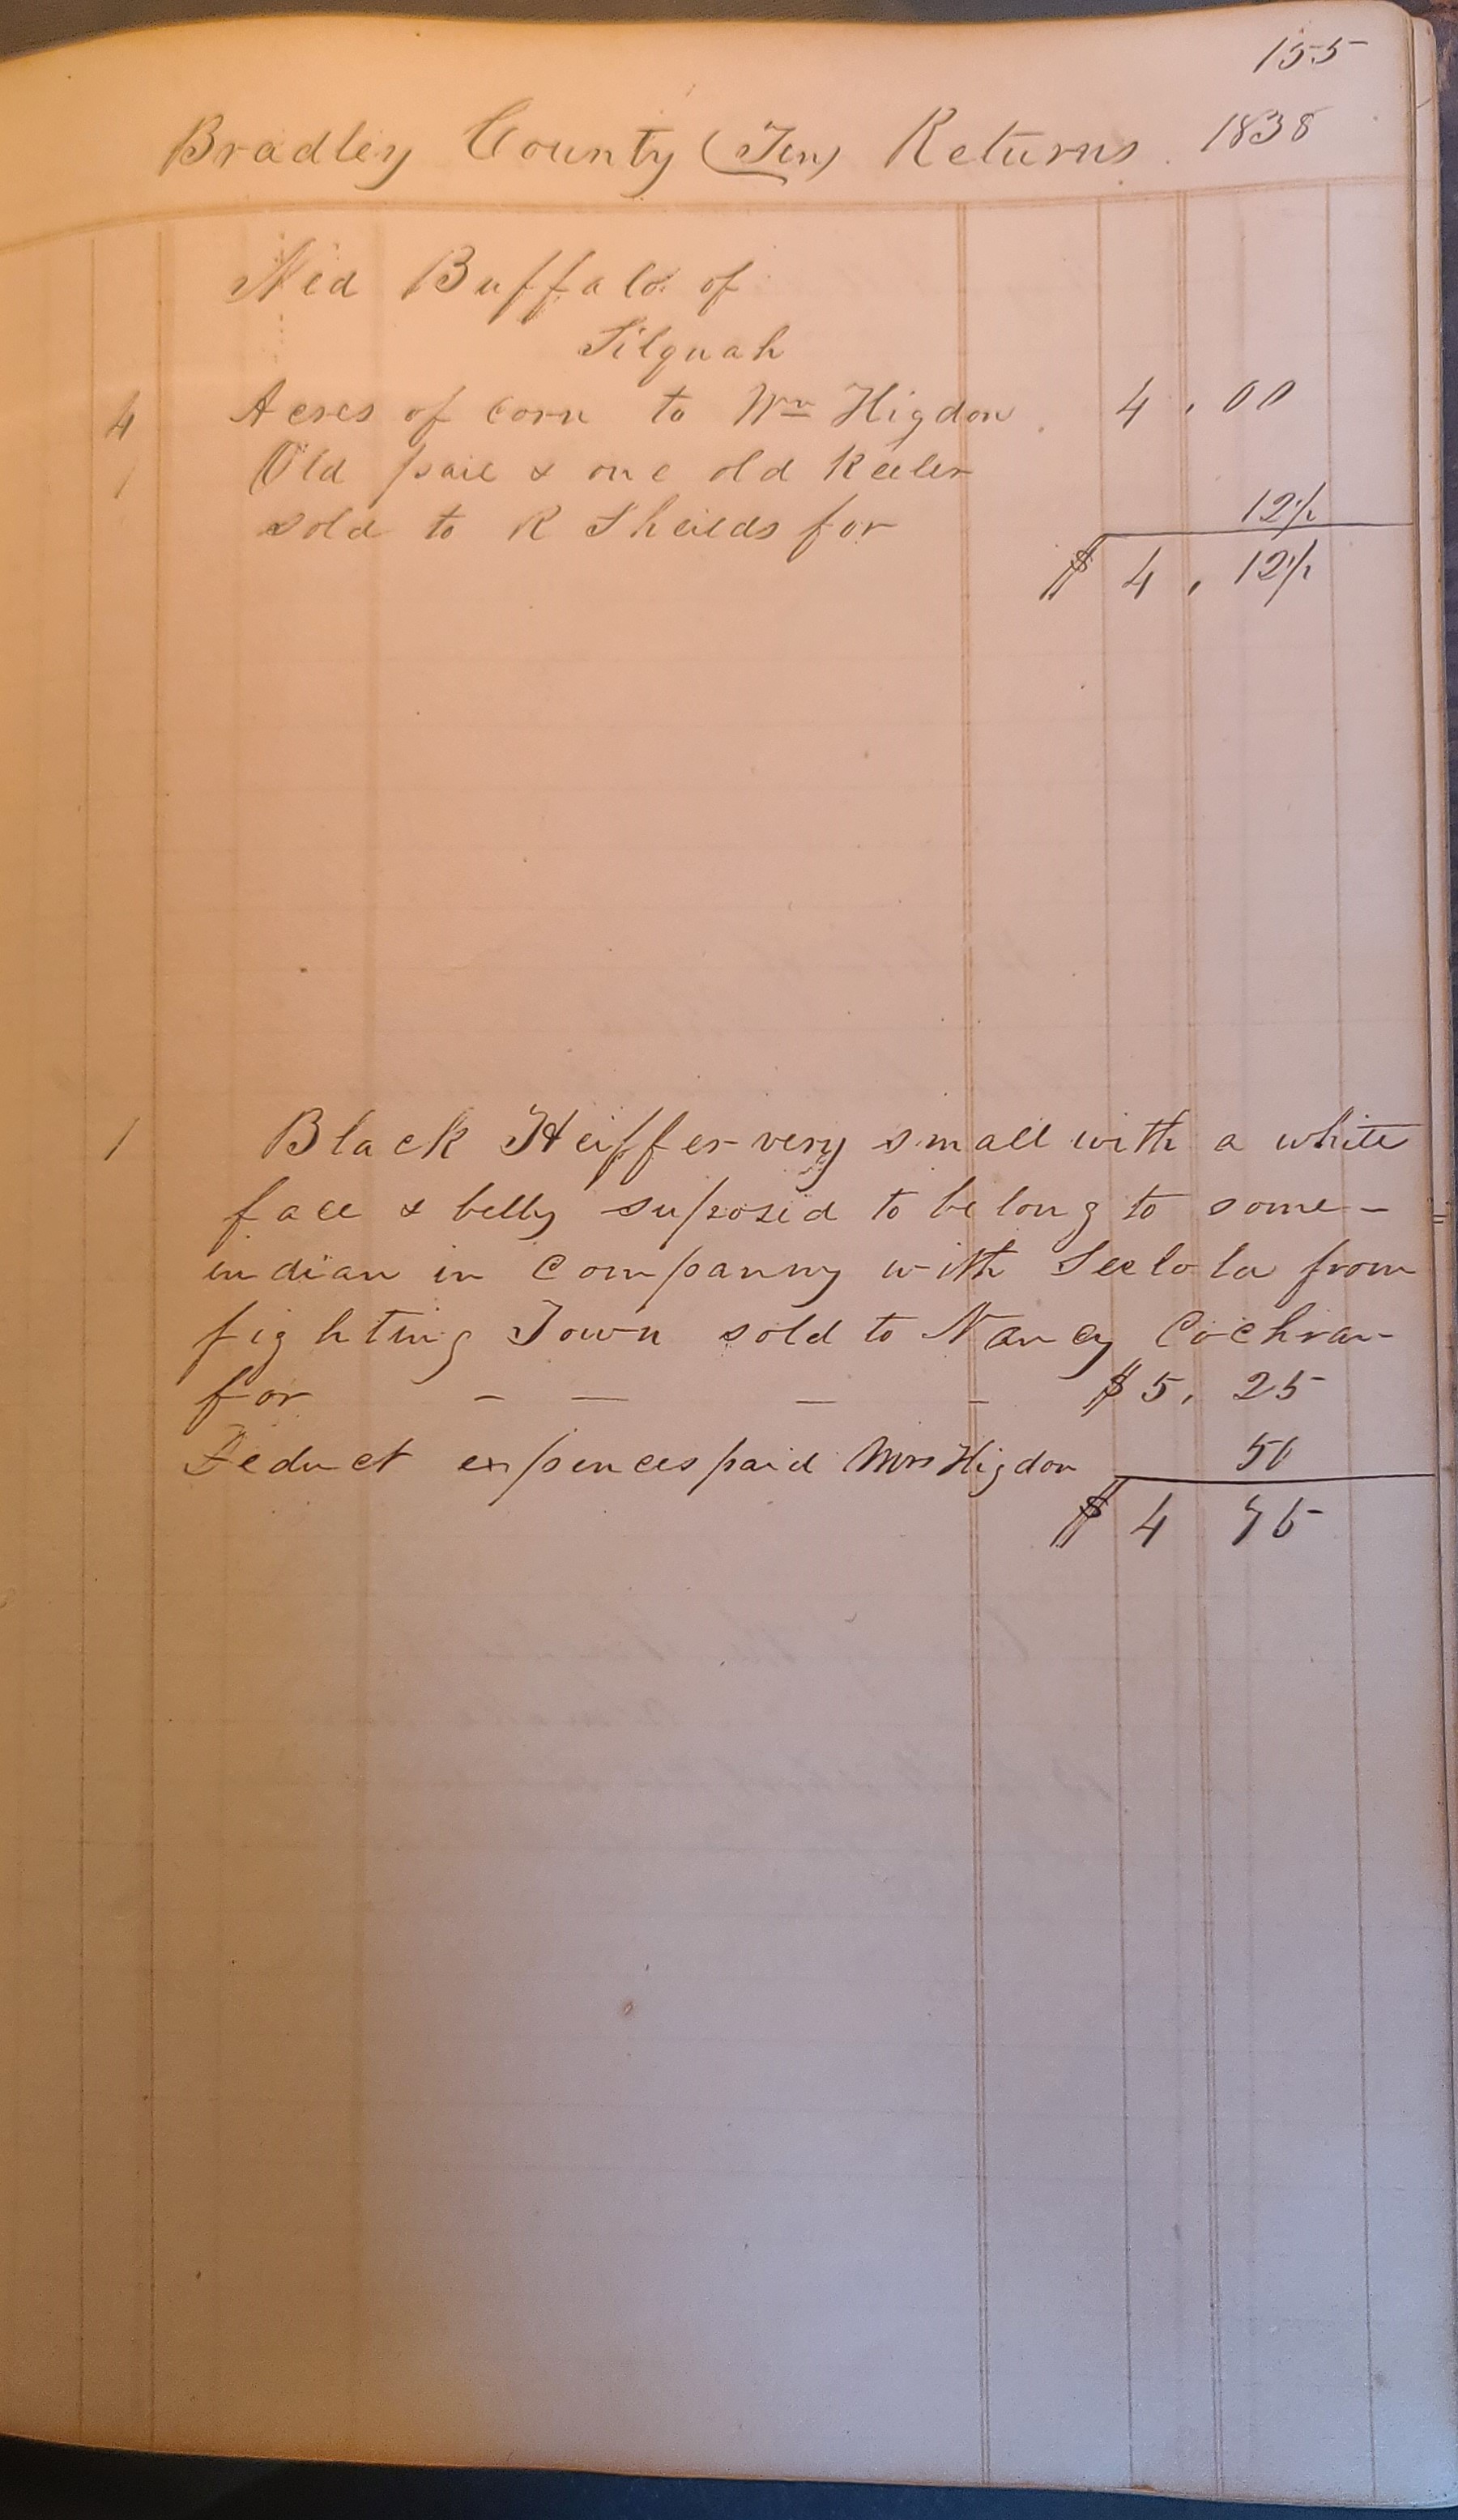 155
Bradley County (Ten) Returns 1838
Ned Buffalo of
Silquah
4 Acres of corn to Wm Higdon. 4.00
1 Old pail & one old Keeler
sold to R Sheilds for 12½
$ 4.12½
1 Black Heiffer very small with a white
face & belly suposed to belong to some-
indian in Companny with Seelola from
fighting Town sold to Nancy Cochran
for - - - - $5.25
Deduct expences paid Mrs Higdon 50
$ 4 75